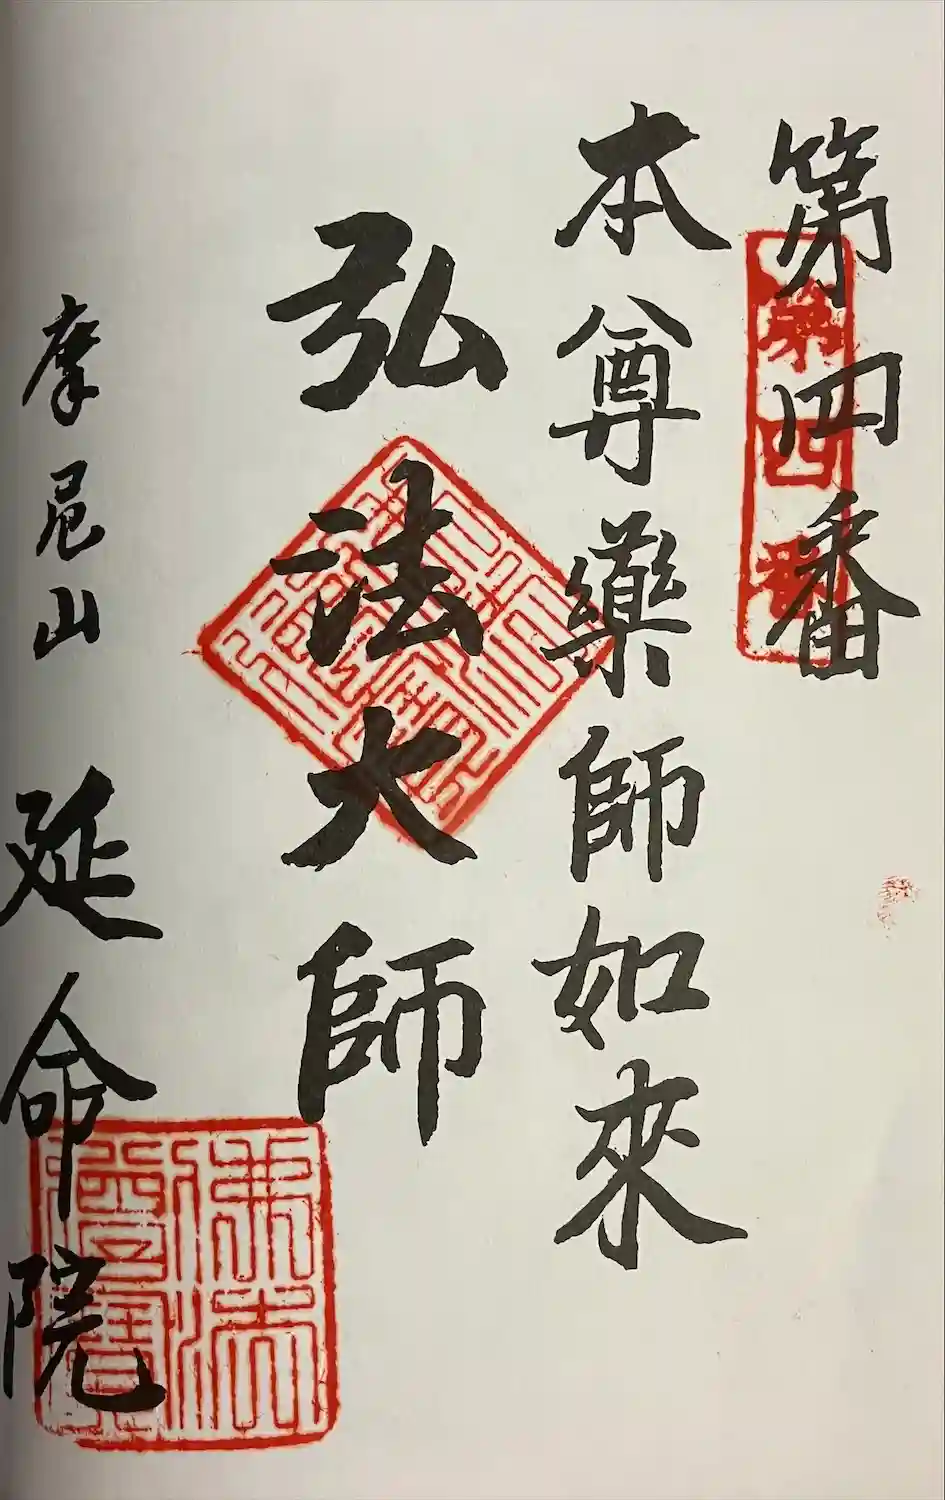 第四番
第四番
本尊藥師如來
弘法大師
摩尼山
延命院
佛法